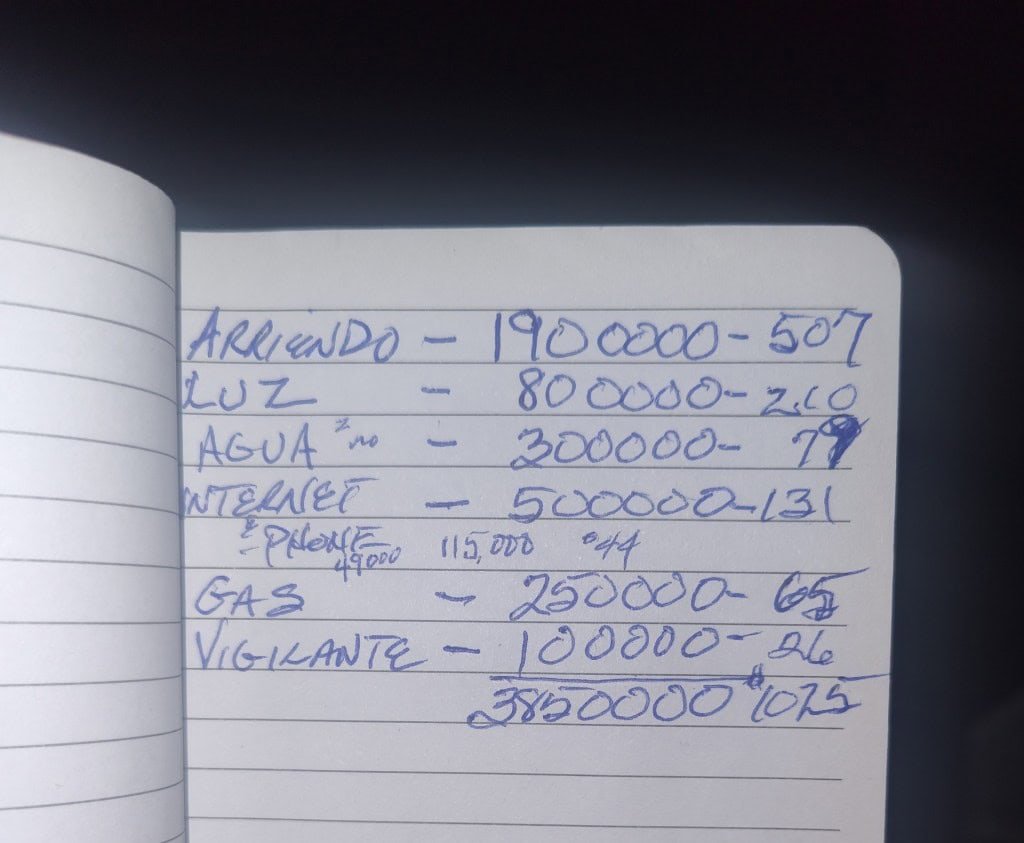 ARRIENDO - 1900000 - 507
LUZ - 800000 - 210
AGUA - 300000 - 79
INTERNET - 500000 - 131
PHONE 115,000 44
49000
GAS - 250000 - 65
VIGILANTE - 100000 - 26
3850000 $1025